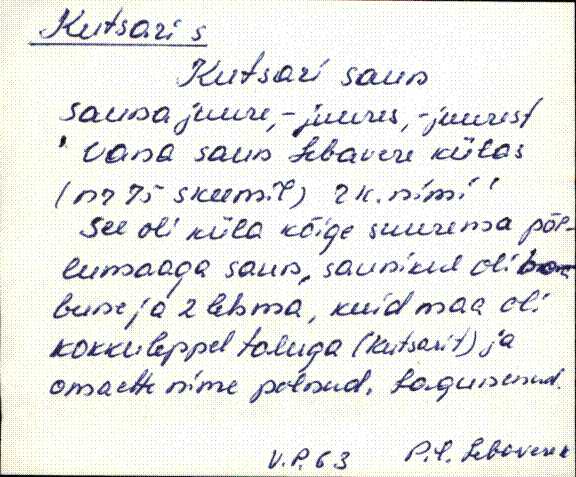 Kutsari s
Kutsari saun
sauna juure, -juures, -juurest
' Vana saun Lebavere külas
(nr 75 skeemil) rk. nimi '
See oli küla kõige suurema põl-
lumaaga saun, saunikul oli ho
bune ja 2 lehma, kuid maa oli
kokkuleppel taluga (Kutsarit) ja
omaette nime polnud. Lagunenud.
V.P. 63 P.P. Lebavere k